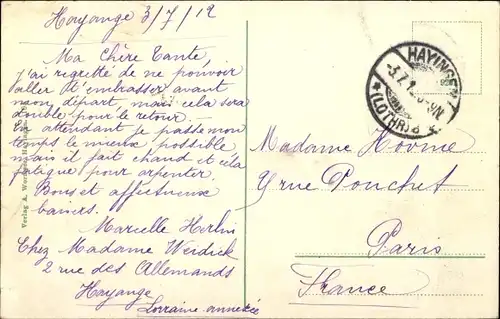 Hayange 3/7/12
Ma Chère Tante,
j'ai regretté de ne pouvoir
aller t'embrasser avant
mon départ, mais cela sera
double pour le retour.
En attendant je passe mon
temps le mieux possible
mais il fait chaud et cela
fatigue pour arpenter.
Bons et affectueux
baisers.
Marcelle
Chez Madame Weidick
2 rue des Allemands
Hayange
Lorraine annexée
HAYINGEN
* (LOTHR) *
Madame
rue Pouchet
Paris
France
Verlag A.